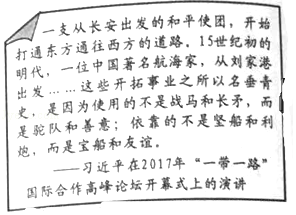 一支从长安出发的和平使团，开始
打通东方通往西方的道路，15世纪初的
明代，一位中国著名航海家，从刘家港
出发……这些开拓事业之所以名垂青
史，是因为使用的不是战马和长矛，而
是驼队和善意；依靠的不是坚船和利
炮，而是宝船和友谊。
——习近平在2017年“一带一路”
国际合作高峰论坛开幕式上的演讲